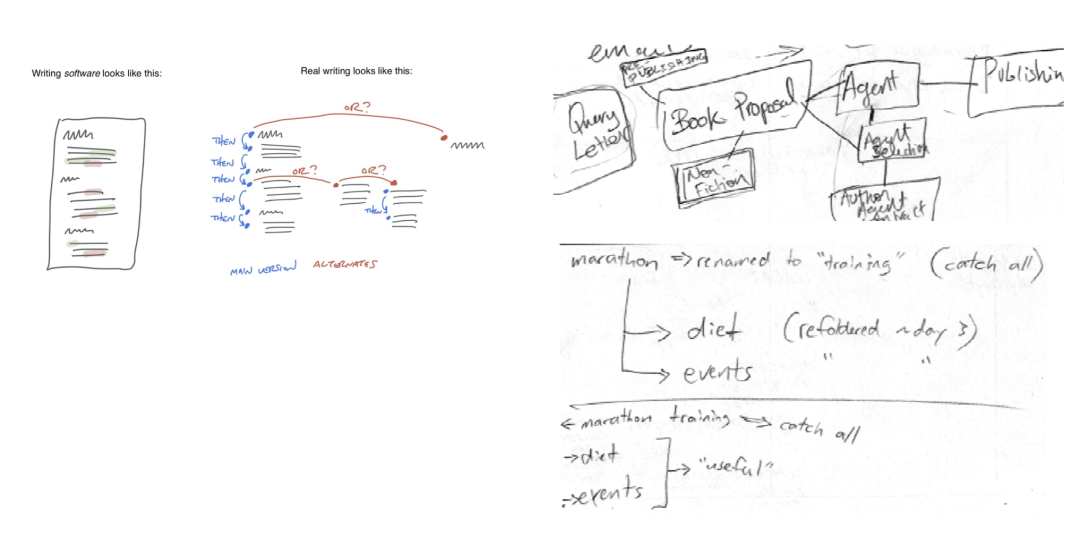 Writing software looks like this:
Real writing looks like this:
OR?
THEN
THEN
THEN
OR?
OR?
THEN
THEN
THEN
MAIN VERSION ALTERNATES
email
PRE-
PUBLISHING
Query
Letter
Book Proposal
Non-
Fiction
Agent
Agent
Selection
Author
Agent
Contract
Publishin
marathon => renamed to "training" (catch all)
→ diet (refoldered ~day 3)
→ events " "
← marathon training => catch all
→ diet
→ "useful"
→ events